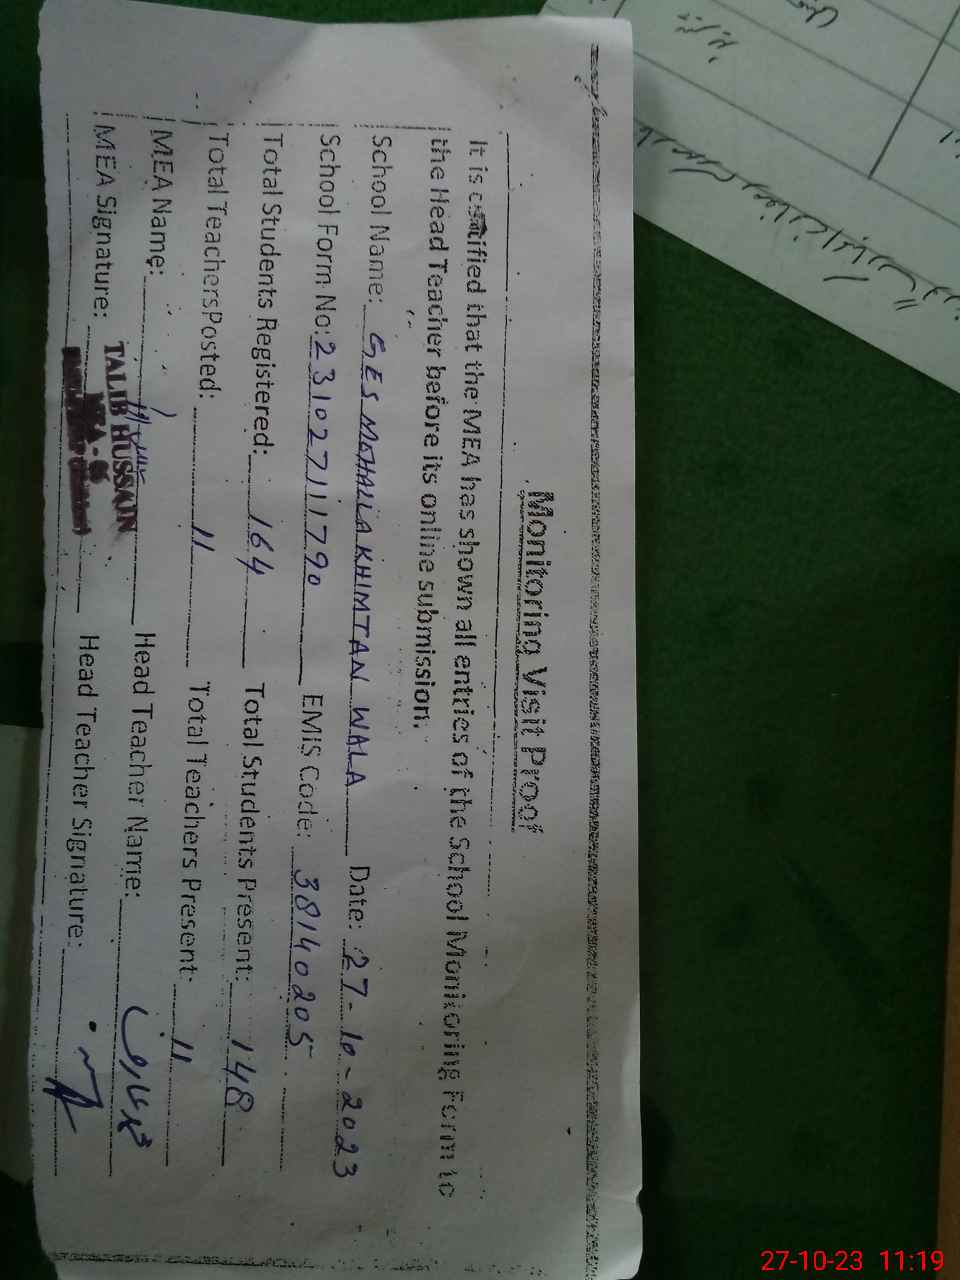 Monitoring Visit Proof
It is certified that the MEA has shown all entries of the School Monitoring Form to
the Head Teacher before its online submission.
School Name: GES MAHALLA KHIMTAN WALA Date: 27-10-2023
School Form No: 23102711790 EMIS Code: 38140205
Total Students Registered: 164 Total Students Present: 148
Total Teachers Posted: 11 Total Teachers Present: 11
MEA Name: TALIB HUSSAIN Head Teacher Name:
MEA Signature: MEA - 06 Head Teacher Signature:
27-10-23 11:19